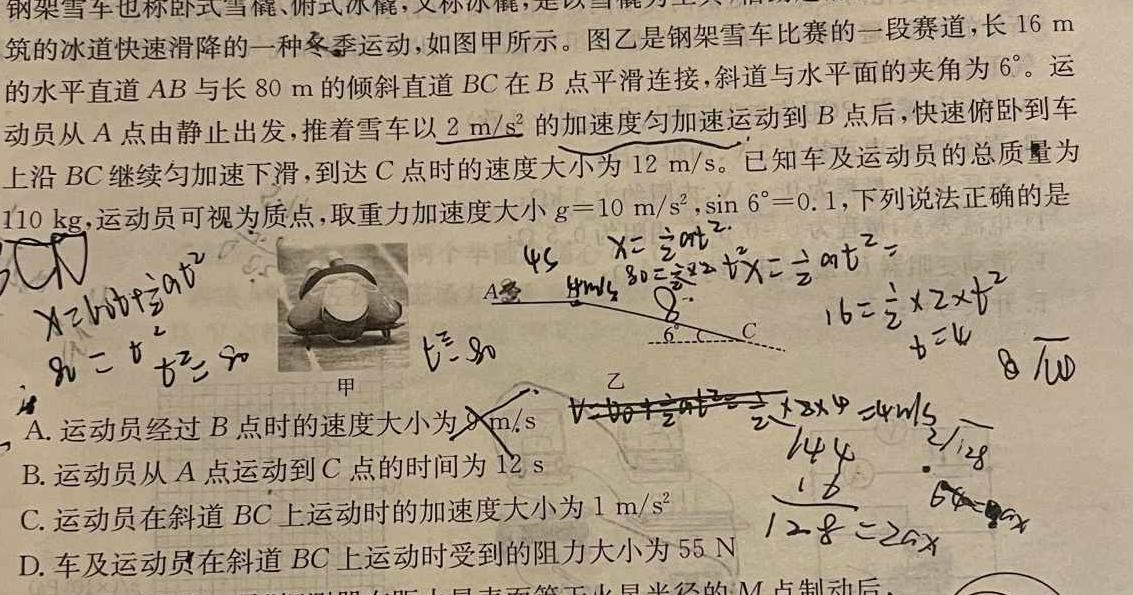 钢架雪车也称卧式雪橇、俯式冰橇,又称冰橇,是以雪橇为工具
筑的冰道快速滑降的一种冬季运动,如图甲所示。图乙是钢架雪车比赛的一段赛道,长 16 m
的水平直道 AB 与长 80 m 的倾斜直道 BC 在 B 点平滑连接,斜道与水平面的夹角为 6°。运
动员从 A 点由静止出发,推着雪车以 2 m/s² 的加速度匀加速运动到 B 点后,快速俯卧到车
上沿 BC 继续匀加速下滑,到达 C 点时的速度大小为 12 m/s。已知车及运动员的总质量为
110 kg,运动员可视为质点,取重力加速度大小 g=10 m/s²,sin 6°=0.1,下列说法正确的是
x=½at²
4s
80=½×2
t²
x=½at²=
x=v0t+½at²
16=½×2×t²
t=4
A
4m/s
8
6°
C
80=t²
t²=80
t²=80
甲
乙
A. 运动员经过 B 点时的速度大小为 9 m/s
V=v0+½at²=½×2×4=4m/s
B. 运动员从 A 点运动到 C 点的时间为 12 s
144
16
2/128
C. 运动员在斜道 BC 上运动时的加速度大小为 1 m/s²
128=2ax
D. 车及运动员在斜道 BC 上运动时受到的阻力大小为 55 N
M 点制动后,